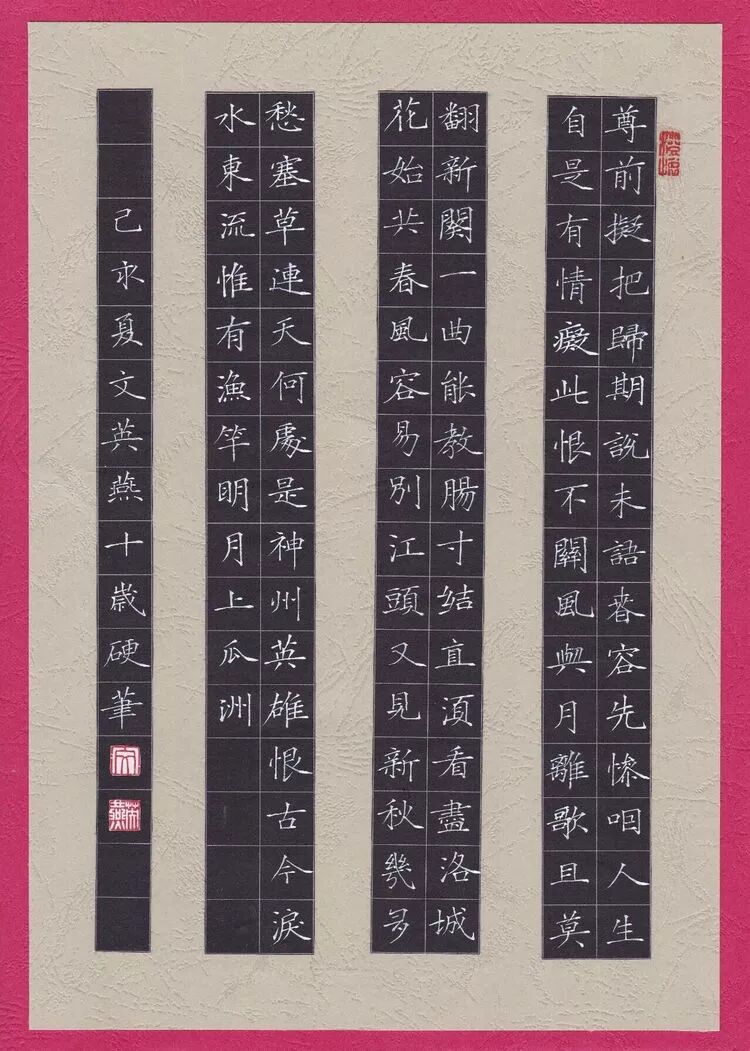 尊前擬把歸期説未語春容先慘咽人生
自是有情癡此恨不關風與月離歌且莫
翻新闋一曲能教腸寸結直須看盡洛城
花始共春風容易別江頭又見新秋幾多
愁塞草連天何處是神州英雄恨古今淚
水東流惟有漁竿明月上瓜洲
己亥夏文英燕十歲硬筆